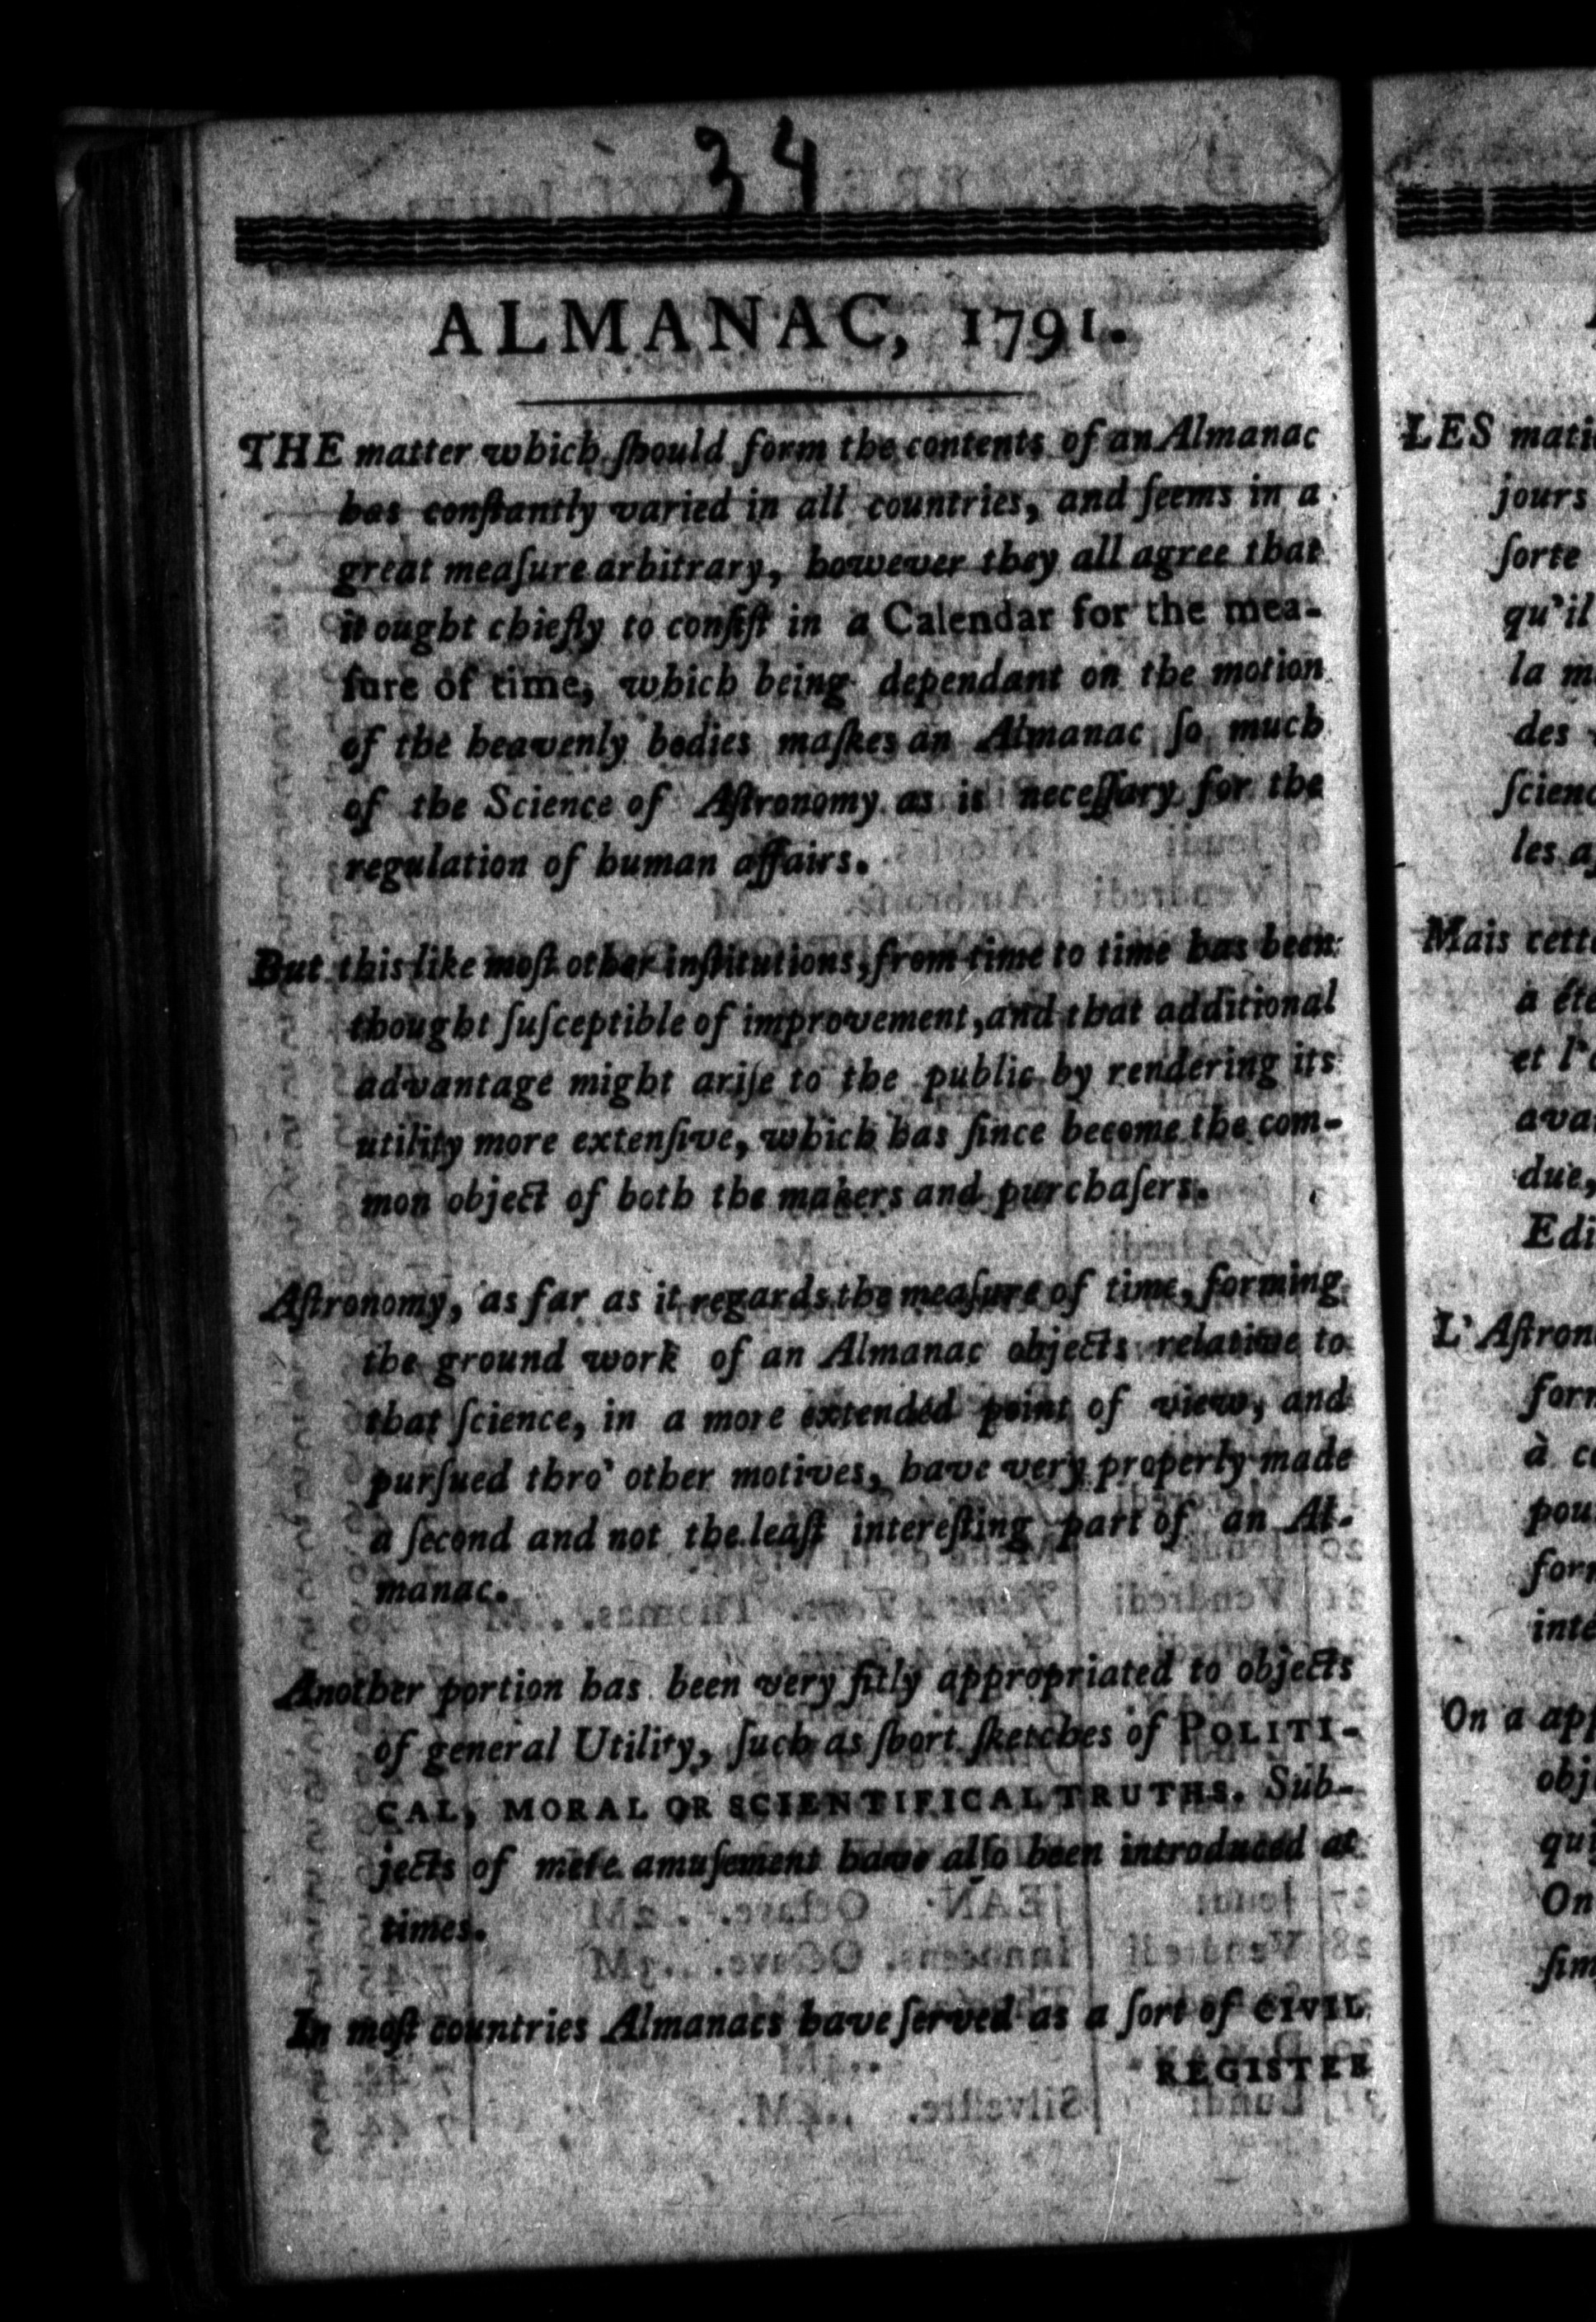 34
ALMANAC, 1791.
THE matter which ſhould form the contents of an Almanac
has conſtantly varied in all countries, and ſeems in a
great meaſure arbitrary, however they all agree that
it ought chiefly to conſiſt in a Calendar for the mea-
ſure of time, which being dependant on the motion
of the heavenly bodies maſkes an Almanac ſo much
of the Science of Aſtronomy as is neceſſary for the
regulation of human affairs.
But this like moſt other inſtitutions, from time to time has been
thought ſuſceptible of improvement, and that additional
advantage might ariſe to the public by rendering its
utility more extenſive, which has ſince become the com-
mon object of both the makers and purchaſers.
Aſtronomy, as far as it regards the meaſure of time, forming
the ground work of an Almanac objects relative to
that ſcience, in a more extended point of view, and
purſued thro' other motives, have very properly made
a ſecond and not the leaſt intereſting part of an Al-
manac.
Another portion has been very fitly appropriated to objects
of general Utility, ſuch as ſhort ſketches of POLITI-
CAL, MORAL OR SCIENTIFICAL TRUTHS. Sub-
jects of mere amuſement have alſo been introduced at
times.
In moſt countries Almanacs have ſerved as a ſort of CIVIL
REGISTER
LES
jours
ſorte
qu'il
la
des
les
Mais
a
et
due,
L'Aſtron
à
On a
On